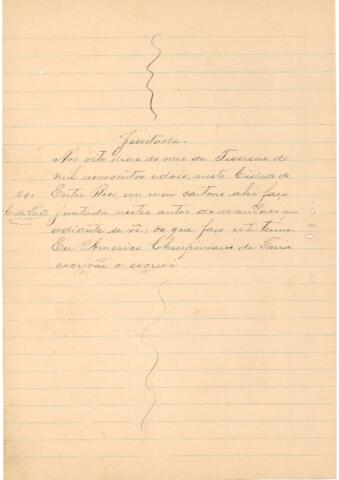 Juntada.
Aos oito dias do mez de Fevereiro de
mil novecentos e dois, nesta Cidade de
Entre Rios, em meu cartorio, ahi faço
juntada nestes autos do mandado que
adiante se vê; do que faço este termo.
Eu Americo Chrispiniano de Faria
escrivão o escrevi